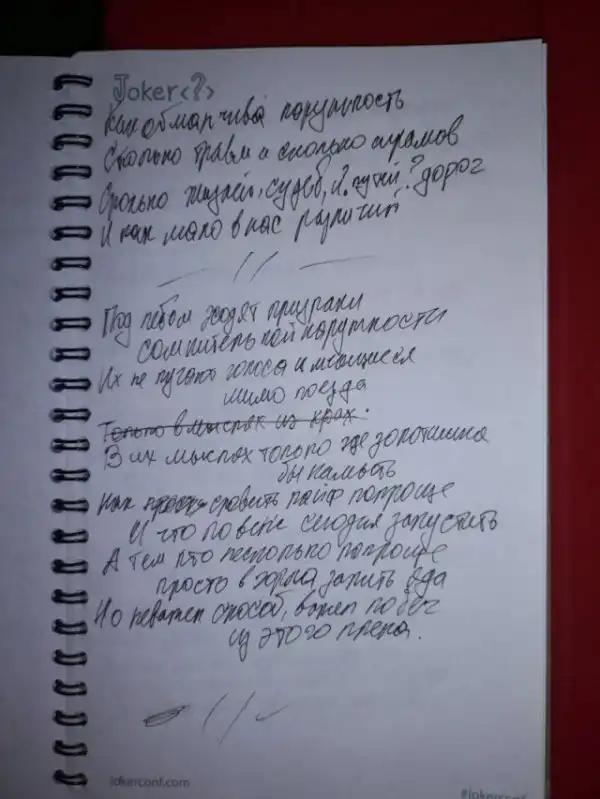 Joker<?>
Как обманчива наружность
Сколько травм и сколько шрамов
Сколько жизней, судеб, и путей? дорог
И как мало в нас различий
Под небом ходят призраки
сомнительной наружности
Их не пугают голоса и мчащиеся
мимо поезда
Только в мыслях их крах.
В их мыслях только где золотишка
бы намыть
Как словить кайф попроще
И что по вене сегодня запустить
А тем кто несколько попроще
просто в горла залить
Но неважен способ, важен побег
из этого плена.
jokerconf.com
#jokerconf